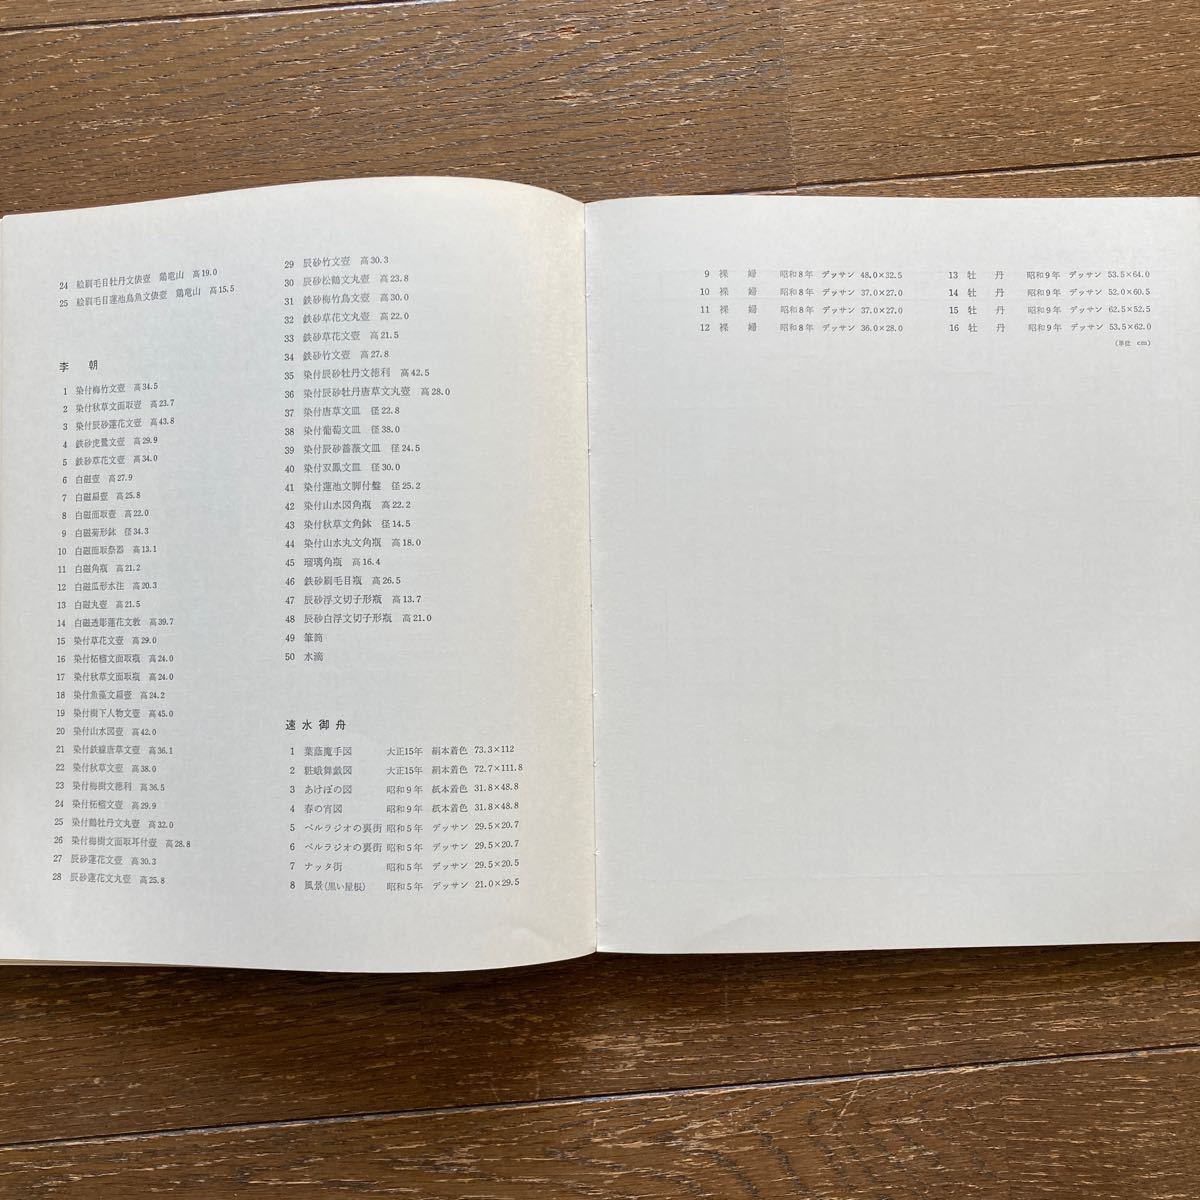 24 絵刷毛目牡丹文俵壺 鶏竜山 高19.0
25 絵刷毛目蓮池鳥魚文俵壺 鶏竜山 高15.5
李朝
1 染付梅竹文壺 高34.5
2 染付秋草文面取壺 高23.7
3 染付辰砂蓮花文壺 高43.8
4 鉄砂虎鷺文壺 高29.9
5 鉄砂草花文壺 高34.0
6 白磁壺 高27.9
7 白磁扁壺 高25.8
8 白磁面取壺 高22.0
9 白磁菊形鉢 径34.3
10 白磁面取祭器 高13.1
11 白磁角瓶 高21.2
12 白磁瓜形水注 高20.3
13 白磁丸壺 高21.5
14 白磁透彫蓮花文敦 高39.7
15 染付草花文壺 高29.0
16 染付柘榴文面取瓶 高24.0
17 染付秋草文面取瓶 高24.0
18 染付魚藻文扁壺 高24.2
19 染付樹下人物文壺 高45.0
20 染付山水図壺 高42.0
21 染付鉄線唐草文壺 高36.1
22 染付秋草文壺 高38.0
23 染付梅樹文徳利 高36.5
24 染付柘榴文壺 高29.9
25 染付鶴牡丹文丸壺 高32.0
26 染付梅樹文面取耳付壺 高28.8
27 辰砂蓮花文壺 高30.3
28 辰砂蓮花文丸壺 高25.8
29 辰砂竹文壺 高30.3
30 辰砂松鶴文丸壺 高23.8
31 鉄砂梅竹鳥文壺 高30.0
32 鉄砂草花文丸壺 高22.0
33 鉄砂草花文壺 高21.5
34 鉄砂竹文壺 高27.8
35 染付辰砂牡丹文徳利 高42.5
36 染付辰砂牡丹唐草文丸壺 高28.0
37 染付唐草文皿 径22.8
38 染付葡萄文皿 径38.0
39 染付辰砂薔薇文皿 径24.5
40 染付双鳳文皿 径30.0
41 染付蓮池文脚付盤 径25.2
42 染付山水図角瓶 高22.2
43 染付秋草文角鉢 径14.5
44 染付山水丸文角瓶 高18.0
45 瑠璃角瓶 高16.4
46 鉄砂刷毛目瓶 高26.5
47 辰砂浮文切子形瓶 高13.7
48 辰砂白浮文切子形瓶 高21.0
49 筆筒
50 水滴
速水御舟
1 葉蔭魔手図 大正15年 絹本着色 73.3×112
2 粧蛾舞戯図 大正15年 絹本着色 72.7×111.8
3 あけぼの図 昭和9年 紙本着色 31.8×48.8
4 春の宵図 昭和9年 紙本着色 31.8×48.8
5 ベルラジオの裏街 昭和5年 デッサン 29.5×20.7
6 ベルラジオの裏街 昭和5年 デッサン 29.5×20.7
7 ナッタ街 昭和5年 デッサン 29.5×20.5
8 風景(黒い屋根) 昭和5年 デッサン 21.0×29.5
9 裸婦 昭和8年 デッサン 48.0×32.5
10 裸婦 昭和8年 デッサン 37.0×27.0
11 裸婦 昭和8年 デッサン 37.0×27.0
12 裸婦 昭和8年 デッサン 36.0×28.0
13 牡丹 昭和9年 デッサン 53.5×64.0
14 牡丹 昭和9年 デッサン 52.0×60.5
15 牡丹 昭和9年 デッサン 62.5×52.5
16 牡丹 昭和9年 デッサン 53.5×62.0
(単位 cm)